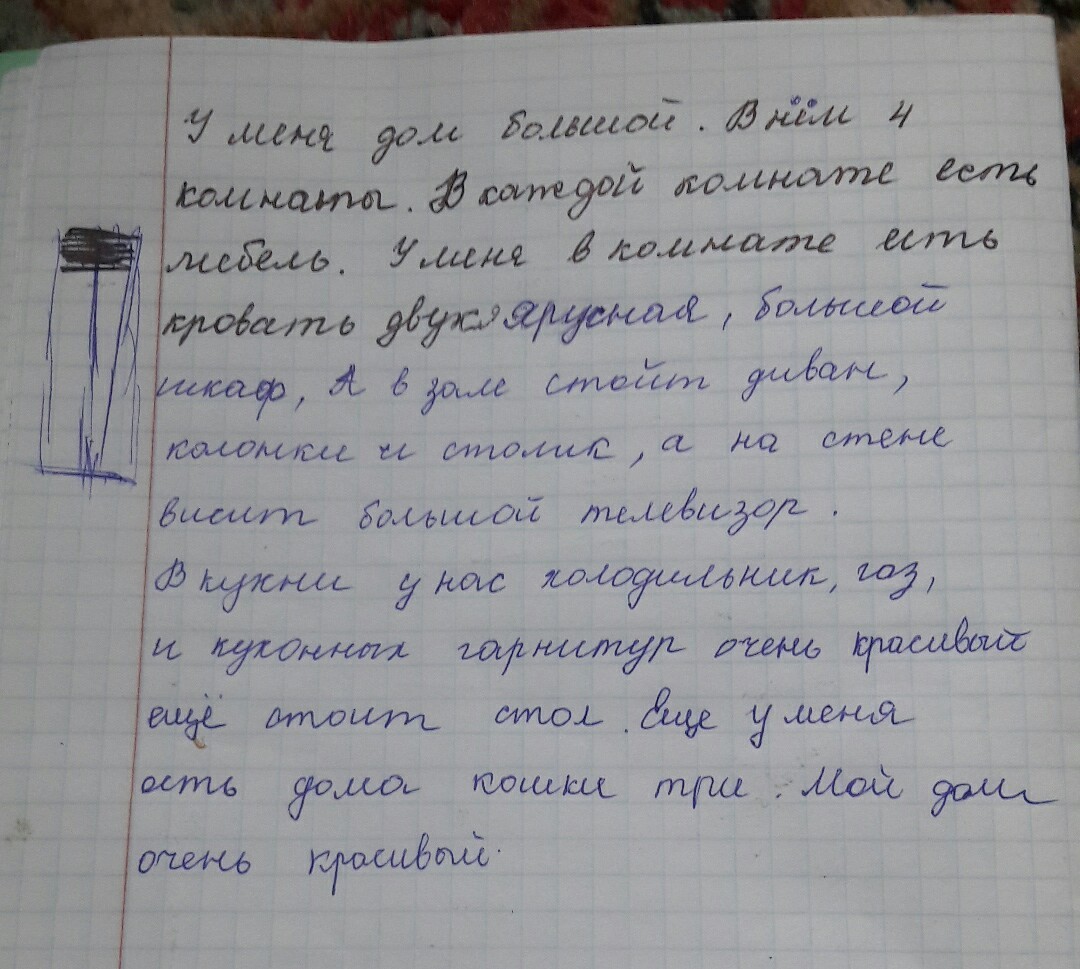 У меня дом большой. В нём 4
комнаты. В каждой комнате есть
мебель. У меня в комнате есть
кровать двухярусная, большой
шкаф, А в зале стойт диван,
колонки и столик, а на стене
висит большой телевизор.
В кухни у нас холодильник, газ,
и кухонных гарнитур очень красивый
ещё стоит стол. Еще у меня
есть дома кошки три. Мой дом
очень красивый.